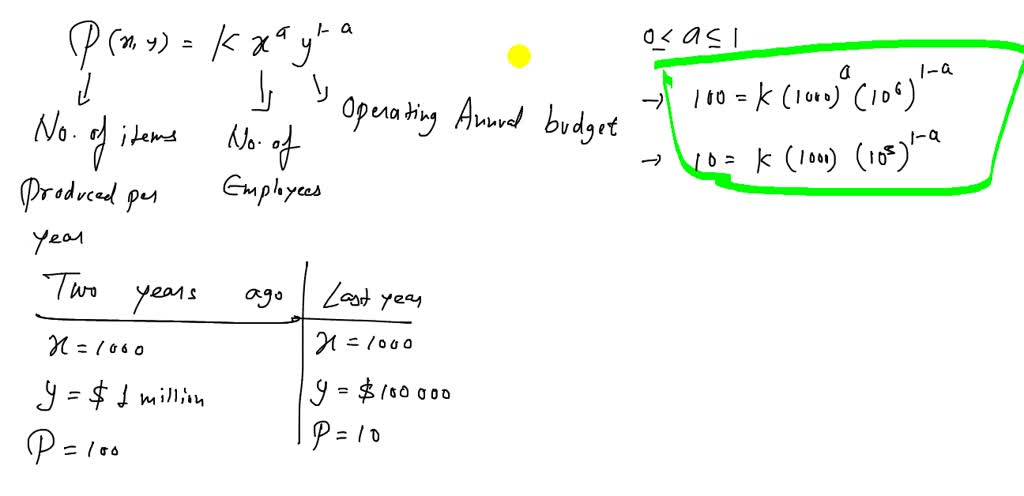 P(x, y) = K x^a y^{1-a}
No. of items Produced per year
No. of Employees
Operating Annual budget
0 ≤ a ≤ 1
→ 100 = K (1000)^a (10^6)^{1-a}
→ 10 = K (1000) (10^5)^{1-a}
Two years ago | Last year
x = 1000 | x = 1000
y = $ 1 million | y = $100 000
P = 100 | P = 10